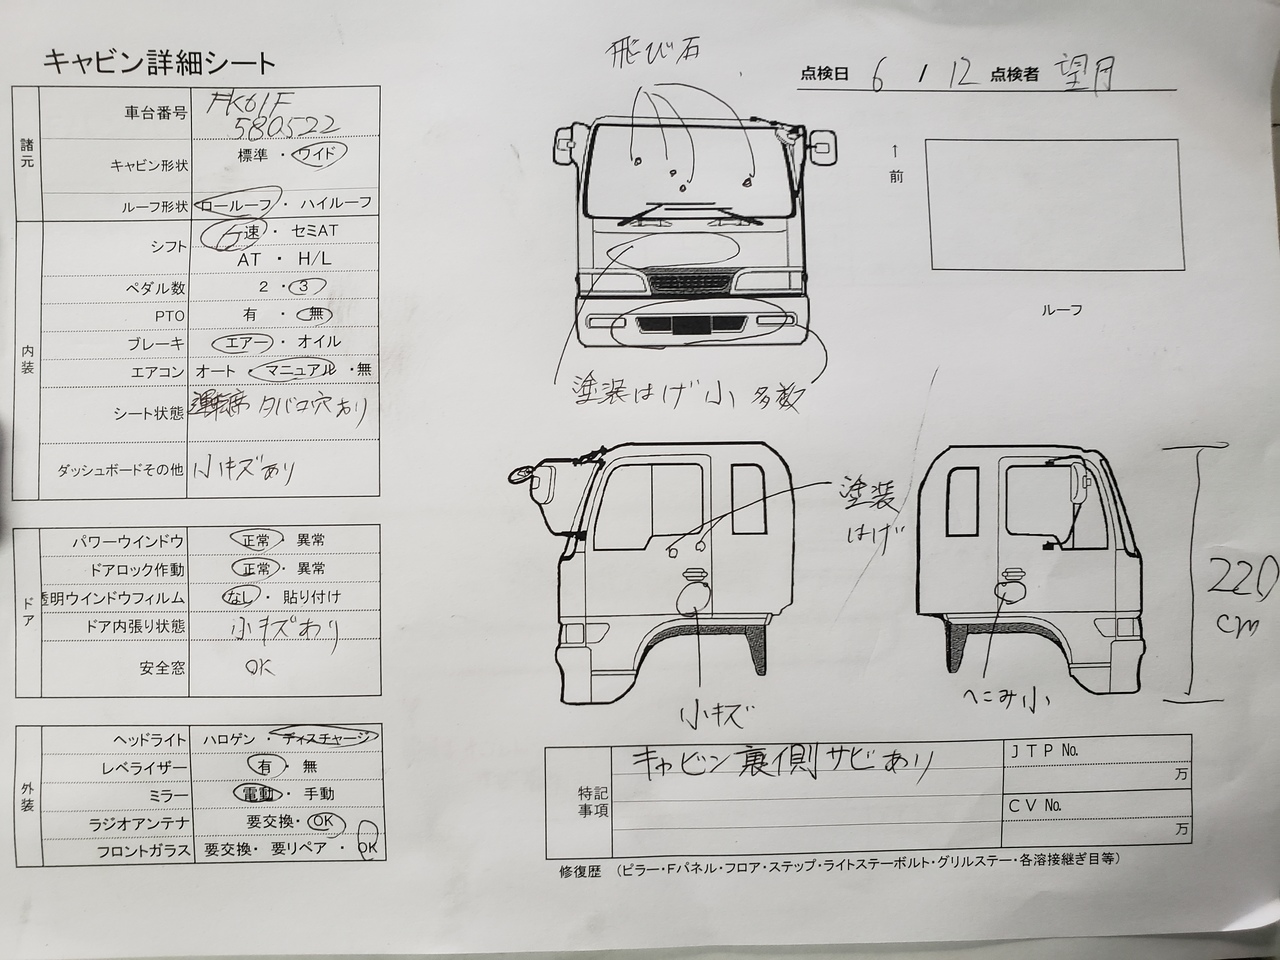 キャビン詳細シート
飛び石
点検日 6 / 12 点検者 望月
諸元
車台番号 FK61F
580522
キャビン形状 標準 ・ ワイド
ルーフ形状 ロールーフ ・ ハイルーフ
内装
シフト 6速 ・ セミAT
AT ・ H/L
ペダル数 2 ・ 3
PTO 有 ・ 無
ブレーキ エアー ・ オイル
エアコン オート ・ マニュアル ・無
シート状態 運転席 タバコ穴あり
ダッシュボードその他 小キズあり
↑
前
ルーフ
塗装はげ小 多数
ドア
パワーウインドウ 正常 ・ 異常
ドアロック作動 正常 ・ 異常
透明ウインドウフィルム なし ・ 貼り付け
ドア内張り状態 小キズあり
安全窓 OK
塗装
はげ
220
cm
小キズ
へこみ小
外装
ヘッドライト ハロゲン ・ ディスチャージ
レベライザー 有 ・ 無
ミラー 電動 ・ 手動
ラジオアンテナ 要交換・ OK
フロントガラス 要交換・ 要リペア ・ OK
特記
事項
キャビン裏側サビあり
JTP No.
万
CV No.
万
修復歴 (ピラー・Fパネル・フロア・ステップ・ライトステーボルト・グリルステー・各溶接継ぎ目等)